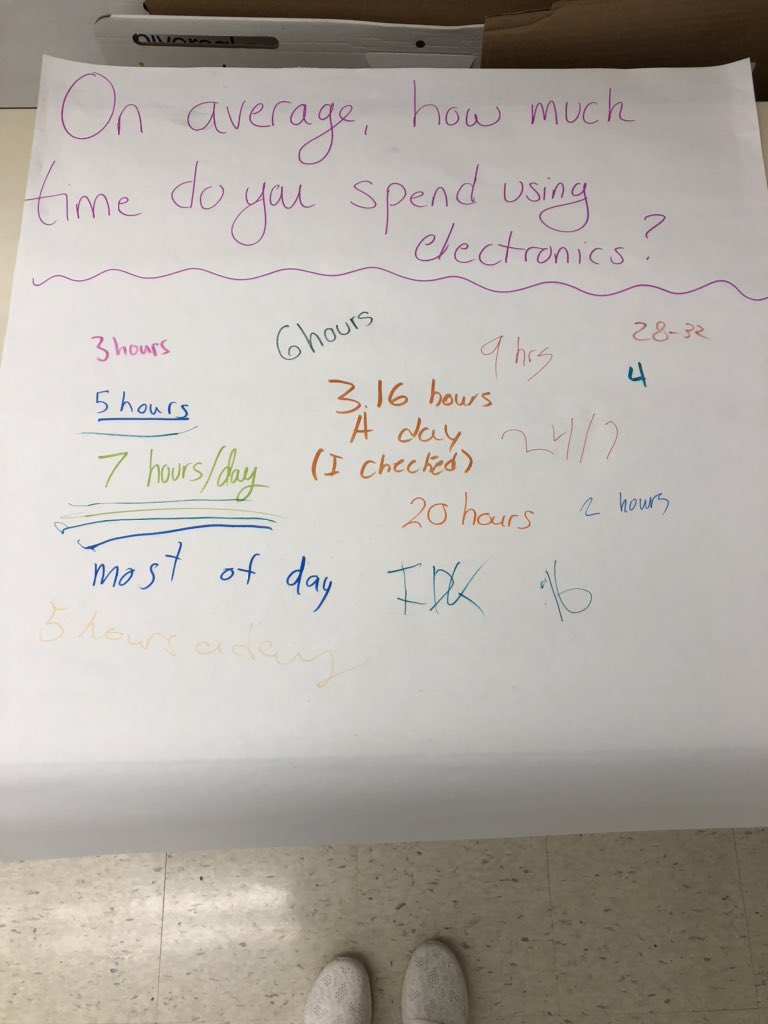 On average, how much
time do you spend using
electronics?
3 hours
6 hours
9 hrs
28-32
4
5 hours
3.16 hours
A day
(I checked)
24/7
7 hours/day
20 hours
2 hours
most of day
IDK
5 hours a day